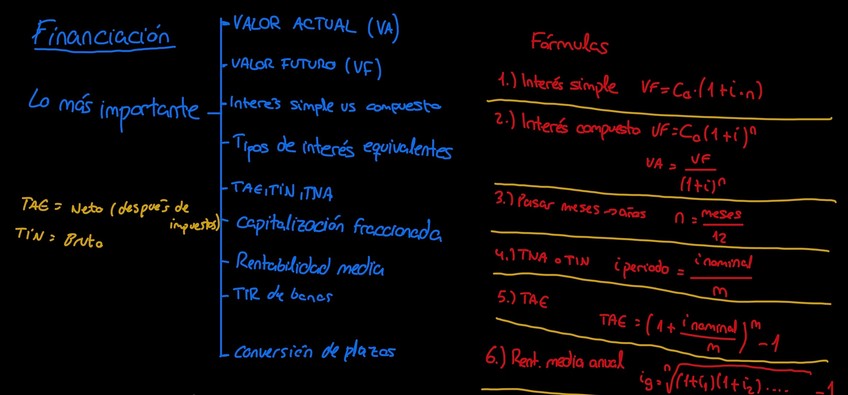 Financiación
Lo más importante
VALOR ACTUAL (VA)
VALOR FUTURO (VF)
Interés simple vs compuesto
Tipos de interés equivalentes
TAE, TIN, TNA
Capitalización fraccionada
Rentabilidad media
TIR de bonos
Conversión de plazos
TAE = Neto (después de
impuestos)
TIN = Bruto
Fórmulas
1.) Interés simple VF = C₀ · (1 + i · n)
2.) Interés compuesto VF = C₀ (1 + i)ⁿ
VA = VF / (1+i)ⁿ
3.) Pasar meses → años n = meses / 12
4.) TNA o TIN i periodo = i nominal / m
5.) TAE
TAE = (1 + i nominal / m)ᵐ - 1
6.) Rent. media anual
ig = ⁿ√(1+i₁)(1+i₂)..... - 1